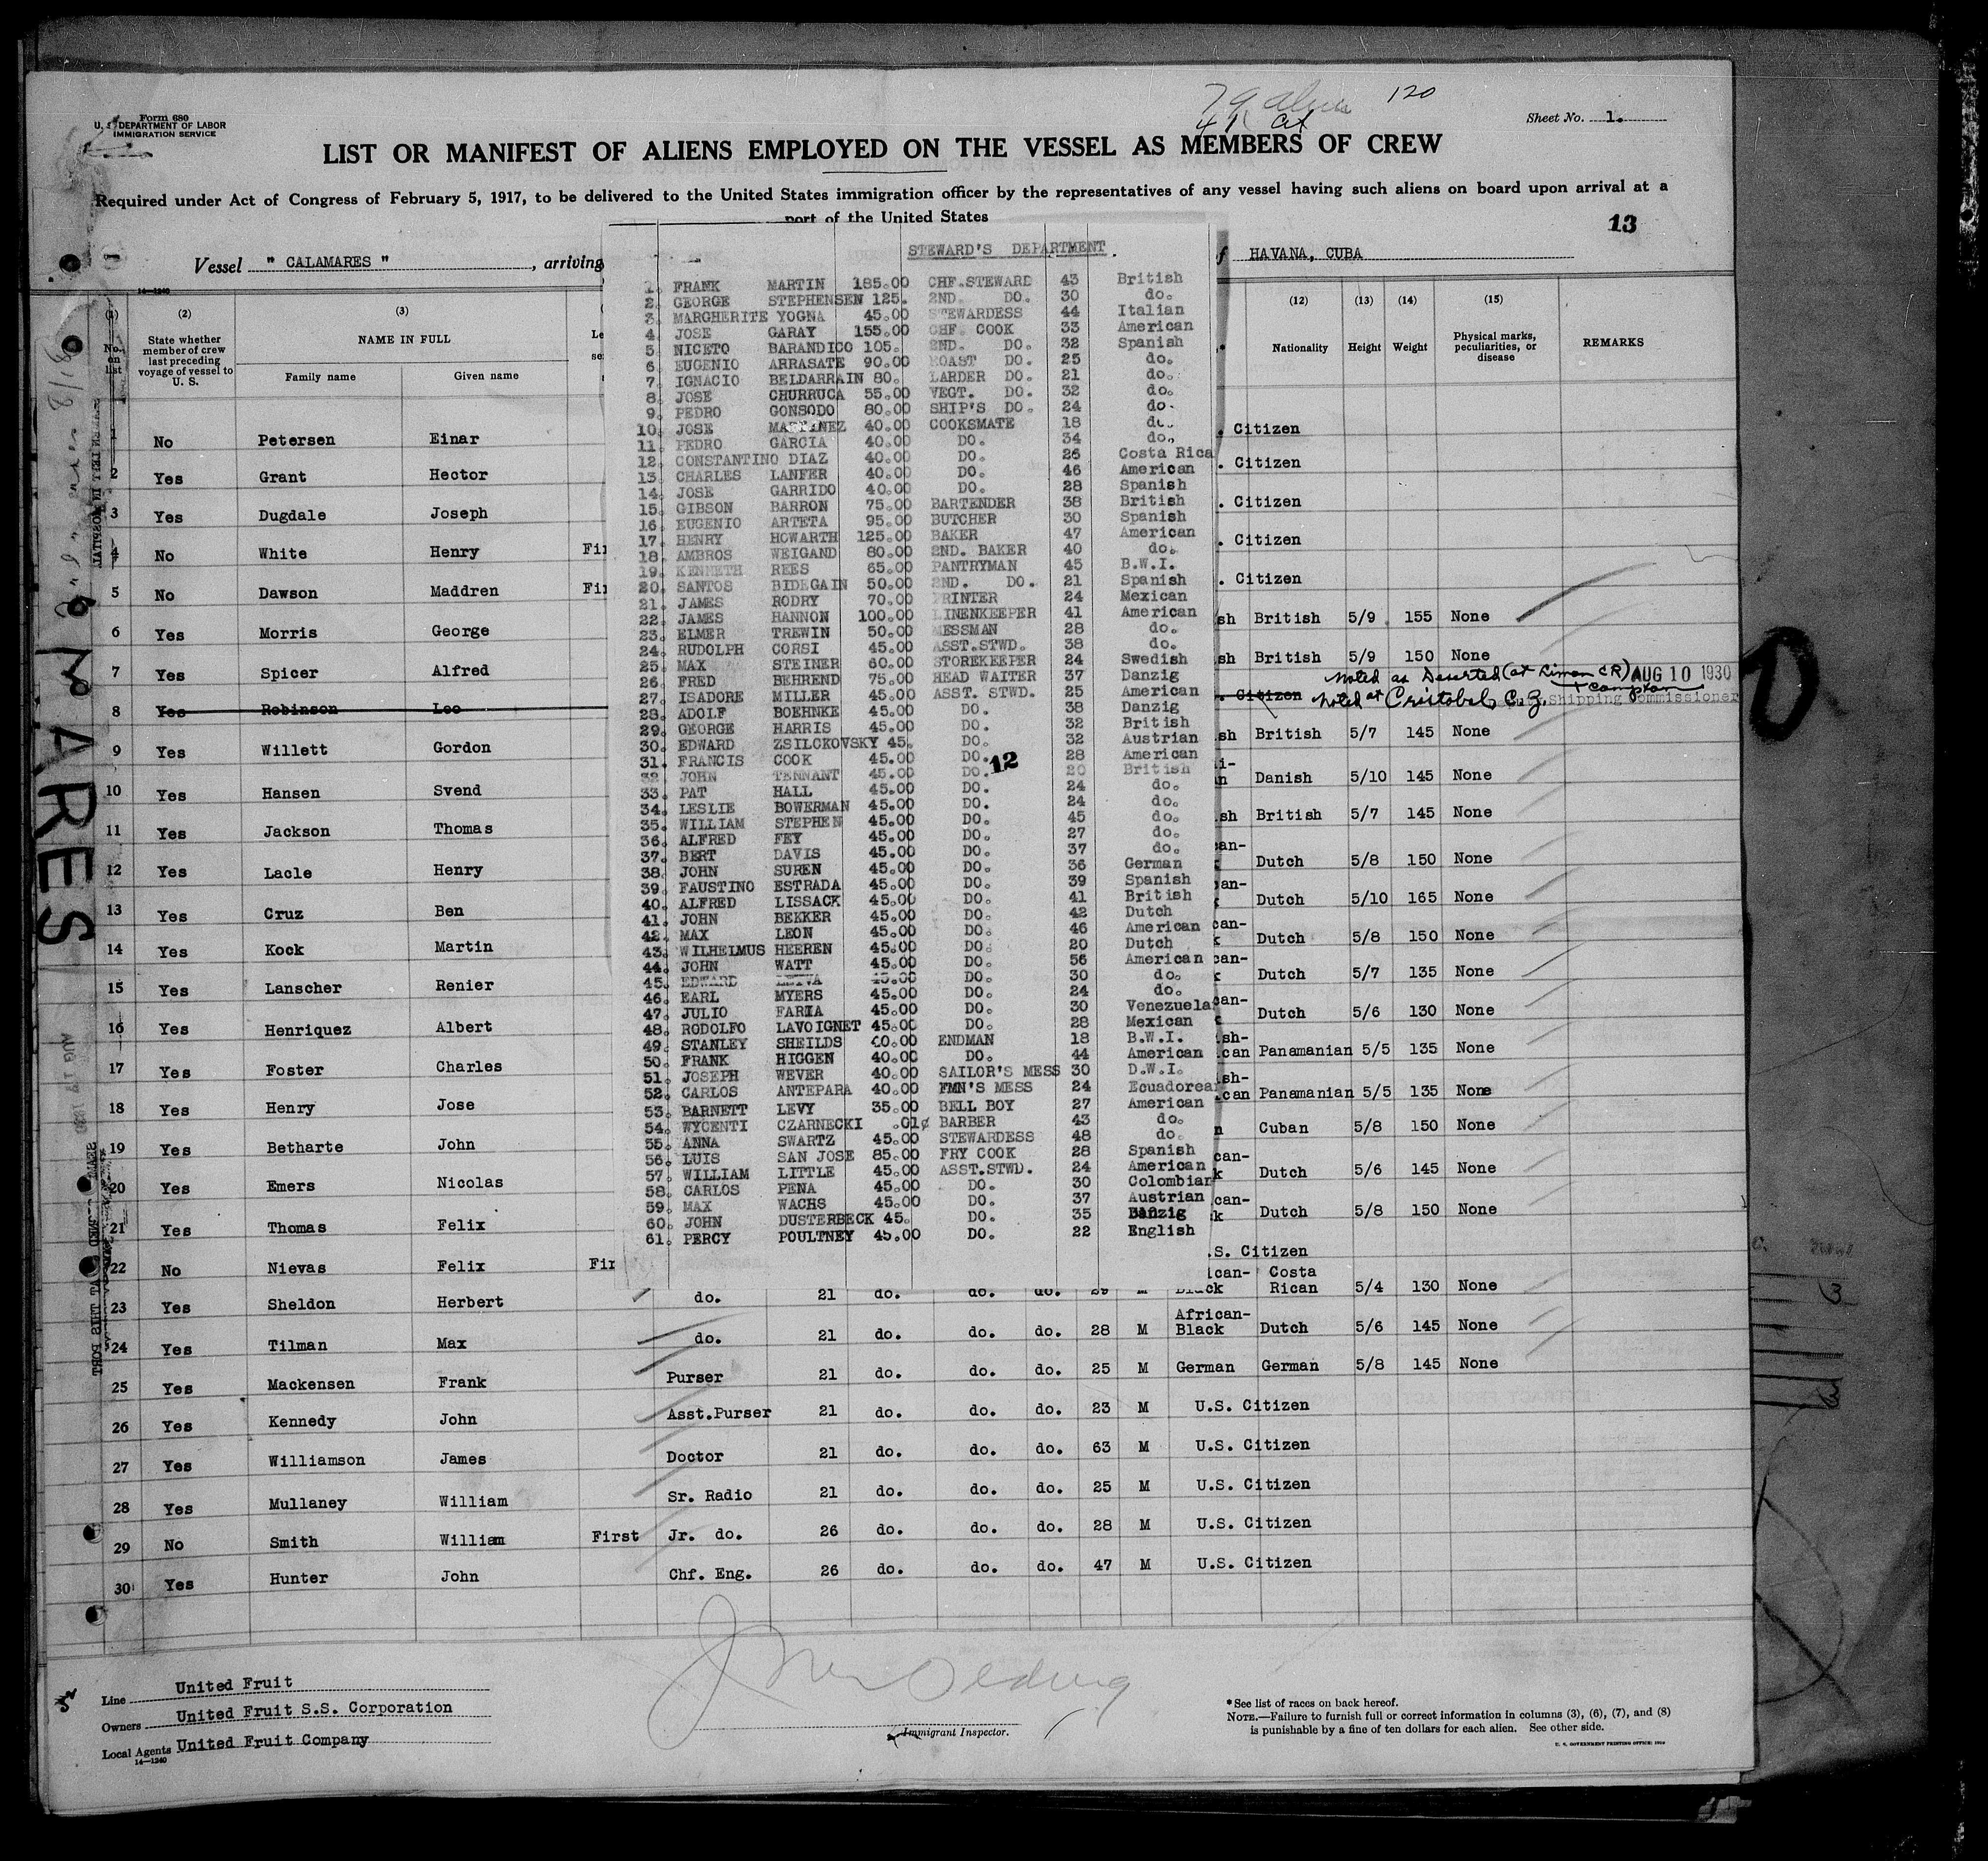 79 Aliens 120
41 Cit
Form 680
U. S. DEPARTMENT OF LABOR
IMMIGRATION SERVICE
Sheet No. 1.
LIST OR MANIFEST OF ALIENS EMPLOYED ON THE VESSEL AS MEMBERS OF CREW
Required under Act of Congress of February 5, 1917, to be delivered to the United States immigration officer by the representatives of any vessel having such aliens on board upon arrival at a
port of the United States
13
Vessel " CALAMARES " , arriving
f HAVANA, CUBA
14-1240
(1) (2) (3) (12) (13) (14) (15)
No. on list
State whether member of crew last preceding voyage of vessel to U. S.
NAME IN FULL
Family name Given name
Nationality Height Weight
Physical marks, peculiarities, or disease
REMARKS
STEWARD'S DEPARTMENT.
1. FRANK MARTIN 185.00 CHF.STEWARD 43 British
2. GEORGE STEPHENSEN 125. 2ND. DO. 30 do.
3. MARGHERITE YOGNA 45.00 STEWARDESS 44 Italian
4. JOSE GARAY 155.00 CHF. COOK 33 American
5. NICETO BARANDICO 105. 2ND. DO. 32 Spanish
6. EUGENIO ARRASATE 90.00 ROAST DO. 25 do.
7. IGNACIO BELDARRAIN 80. LARDER DO. 21 do.
8. JOSE CHURRUCA 55.00 VEGT. DO. 32 do.
9. PEDRO GONSODO 80.00 SHIP'S DO. 24 do.
10. JOSE MARTINEZ 40.00 COOKSMATE 18 do.
11. PEDRO GARCIA 40.00 DO. 34 do.
12. CONSTANTINO DIAZ 40.00 DO. 26 Costa Rica
13. CHARLES LANFER 40.00 DO. 46 American
14. JOSE GARRIDO 40.00 DO. 28 Spanish
15. GIBSON BARRON 75.00 BARTENDER 38 British
16. EUGENIO ARTETA 95.00 BUTCHER 30 Spanish
17. HENRY HOWARTH 125.00 BAKER 47 American
18. AMBROS WEIGAND 80.00 2ND. BAKER 40 do.
19. KENNETH REES 65.00 PANTRYMAN 45 B.W.I.
20. SANTOS BIDEGAIN 50.00 2ND. DO. 21 Spanish
21. JAMES RODRY 70.00 PRINTER 24 Mexican
22. JAMES HANNON 100.00 LINENKEEPER 41 American
23. ELMER TREWIN 50.00 MESSMAN 28 do.
24. RUDOLPH CORSI 45.00 ASST.STWD. 38 do.
25. MAX STEINER 60.00 STOREKEEPER 24 Swedish
26. FRED BEHREND 75.00 HEAD WAITER 37 Danzig
27. ISADORE MILLER 45.00 ASST. STWD. 25 American
28. ADOLF BOEHNKE 45.00 DO. 38 Danzig
29. GEORGE HARRIS 45.00 DO. 32 British
30. EDWARD ZSILCKOVSKY 45. DO. 32 Austrian
31. FRANCIS COOK 45.00 DO. 28 American
12
32. JOHN TENNANT 45.00 DO. 20 British
33. PAT HALL 45.00 DO. 24 do.
34. LESLIE BOWERMAN 45.00 DO. 24 do.
35. WILLIAM STEPHEN 45.00 DO. 45 do.
36. ALFRED FEY 45.00 DO. 27 do.
37. BERT DAVIS 45.00 DO. 37 do.
38. JOHN SUREN 45.00 DO. 36 German
39. FAUSTINO ESTRADA 45.00 DO. 39 Spanish
40. ALFRED LISSACK 45.00 DO. 41 British
41. JOHN BEKKER 45.00 DO. 42 Dutch
42. MAX LEON 45.00 DO. 46 American
43. WILHELMUS HEEREN 45.00 DO. 20 Dutch
44. JOHN WATT 45.00 DO. 56 American
45. EDWARD 45.00 DO. 30 do.
46. EARL MYERS 45.00 DO. 24 do.
47. JULIO FARIA 45.00 DO. 30 Venezuela
48. RODOLFO LAVOIGNET 45.00 DO. 28 Mexican
49. STANLEY SHEILDS 40.00 ENDMAN 18 B.W.I.
50. FRANK HIGGEN 40.00 DO. 44 American
51. JOSEPH WEVER 40.00 SAILOR'S MESS 30 D.W.I.
52. CARLOS ANTEPARA 40.00 FMN'S MESS 24 Ecuadorean
53. BARNETT LEVY 35.00 BELL BOY 27 American
54. WYCENTI CZARNECKI .01¢ BARBER 43 do.
55. ANNA SWARTZ 45.00 STEWARDESS 48 do.
56. LUIS SAN JOSE 85.00 FRY COOK 28 Spanish
57. WILLIAM LITTLE 45.00 ASST.STWD. 24 American
58. CARLOS PENA 45.00 DO. 30 Colombian
59. MAX WACHS 45.00 DO. 37 Austrian
60. JOHN DUSTERBECK 45. DO. 35 Danzig
61. PERCY POULTNEY 45.00 DO. 22 English
1 No Petersen Einar . Citizen
2 Yes Grant Hector . Citizen
3 Yes Dugdale Joseph . Citizen
4 No White Henry Fir . Citizen
5 No Dawson Maddren Fir . Citizen
6 Yes Morris George sh British 5/9 155 None
7 Yes Spicer Alfred sh British 5/9 150 None
8 Yes Robinson Leo . Citizen
noted as Deserted (at Limon CR) AUG 10 1930
noted at Cristobal, C.Z. Shipping Commissioner
9 Yes Willett Gordon sh British 5/7 145 None
10 Yes Hansen Svend Danish 5/10 145 None
11 Yes Jackson Thomas sh British 5/7 145 None
12 Yes Lacle Henry can- Dutch 5/8 150 None
13 Yes Cruz Ben an- Dutch 5/10 165 None
14 Yes Kock Martin can- Dutch 5/8 150 None
15 Yes Lanscher Renier can- Dutch 5/7 135 None
16 Yes Henriquez Albert can- Dutch 5/6 130 None
17 Yes Foster Charles sh- can Panamanian 5/5 135 None
18 Yes Henry Jose sh- can Panamanian 5/5 135 None
19 Yes Betharte John n Cuban 5/8 150 None
20 Yes Emers Nicolas can- k Dutch 5/6 145 None
21 Yes Thomas Felix can- k Dutch 5/8 150 None
22 No Nievas Felix Fir .S. Citizen
23 Yes Sheldon Herbert do. 21 do. do. do. 29 M ican- Black Costa Rican 5/4 130 None
24 Yes Tilman Max do. 21 do. do. do. 28 M African-Black Dutch 5/6 145 None
25 Yes Mackensen Frank Purser 21 do. do. do. 25 M German German 5/8 145 None
26 Yes Kennedy John Asst.Purser 21 do. do. do. 23 M U.S. Citizen
27 Yes Williamson James Doctor 21 do. do. do. 63 M U.S. Citizen
28 Yes Mullaney William Sr. Radio 21 do. do. do. 25 M U.S. Citizen
29 No Smith William First Jr. do. 26 do. do. do. 28 M U.S. Citizen
30 Yes Hunter John Chf. Eng. 26 do. do. do. 47 M U.S. Citizen
Line United Fruit
Owners United Fruit S.S. Corporation
Local Agents United Fruit Company
14-1240
Immigrant Inspector.
*See list of races on back hereof.
NOTE.—Failure to furnish full or correct information in columns (3), (6), (7), and (8)
is punishable by a fine of ten dollars for each alien. See other side.
U. S. GOVERNMENT PRINTING OFFICE
ARES